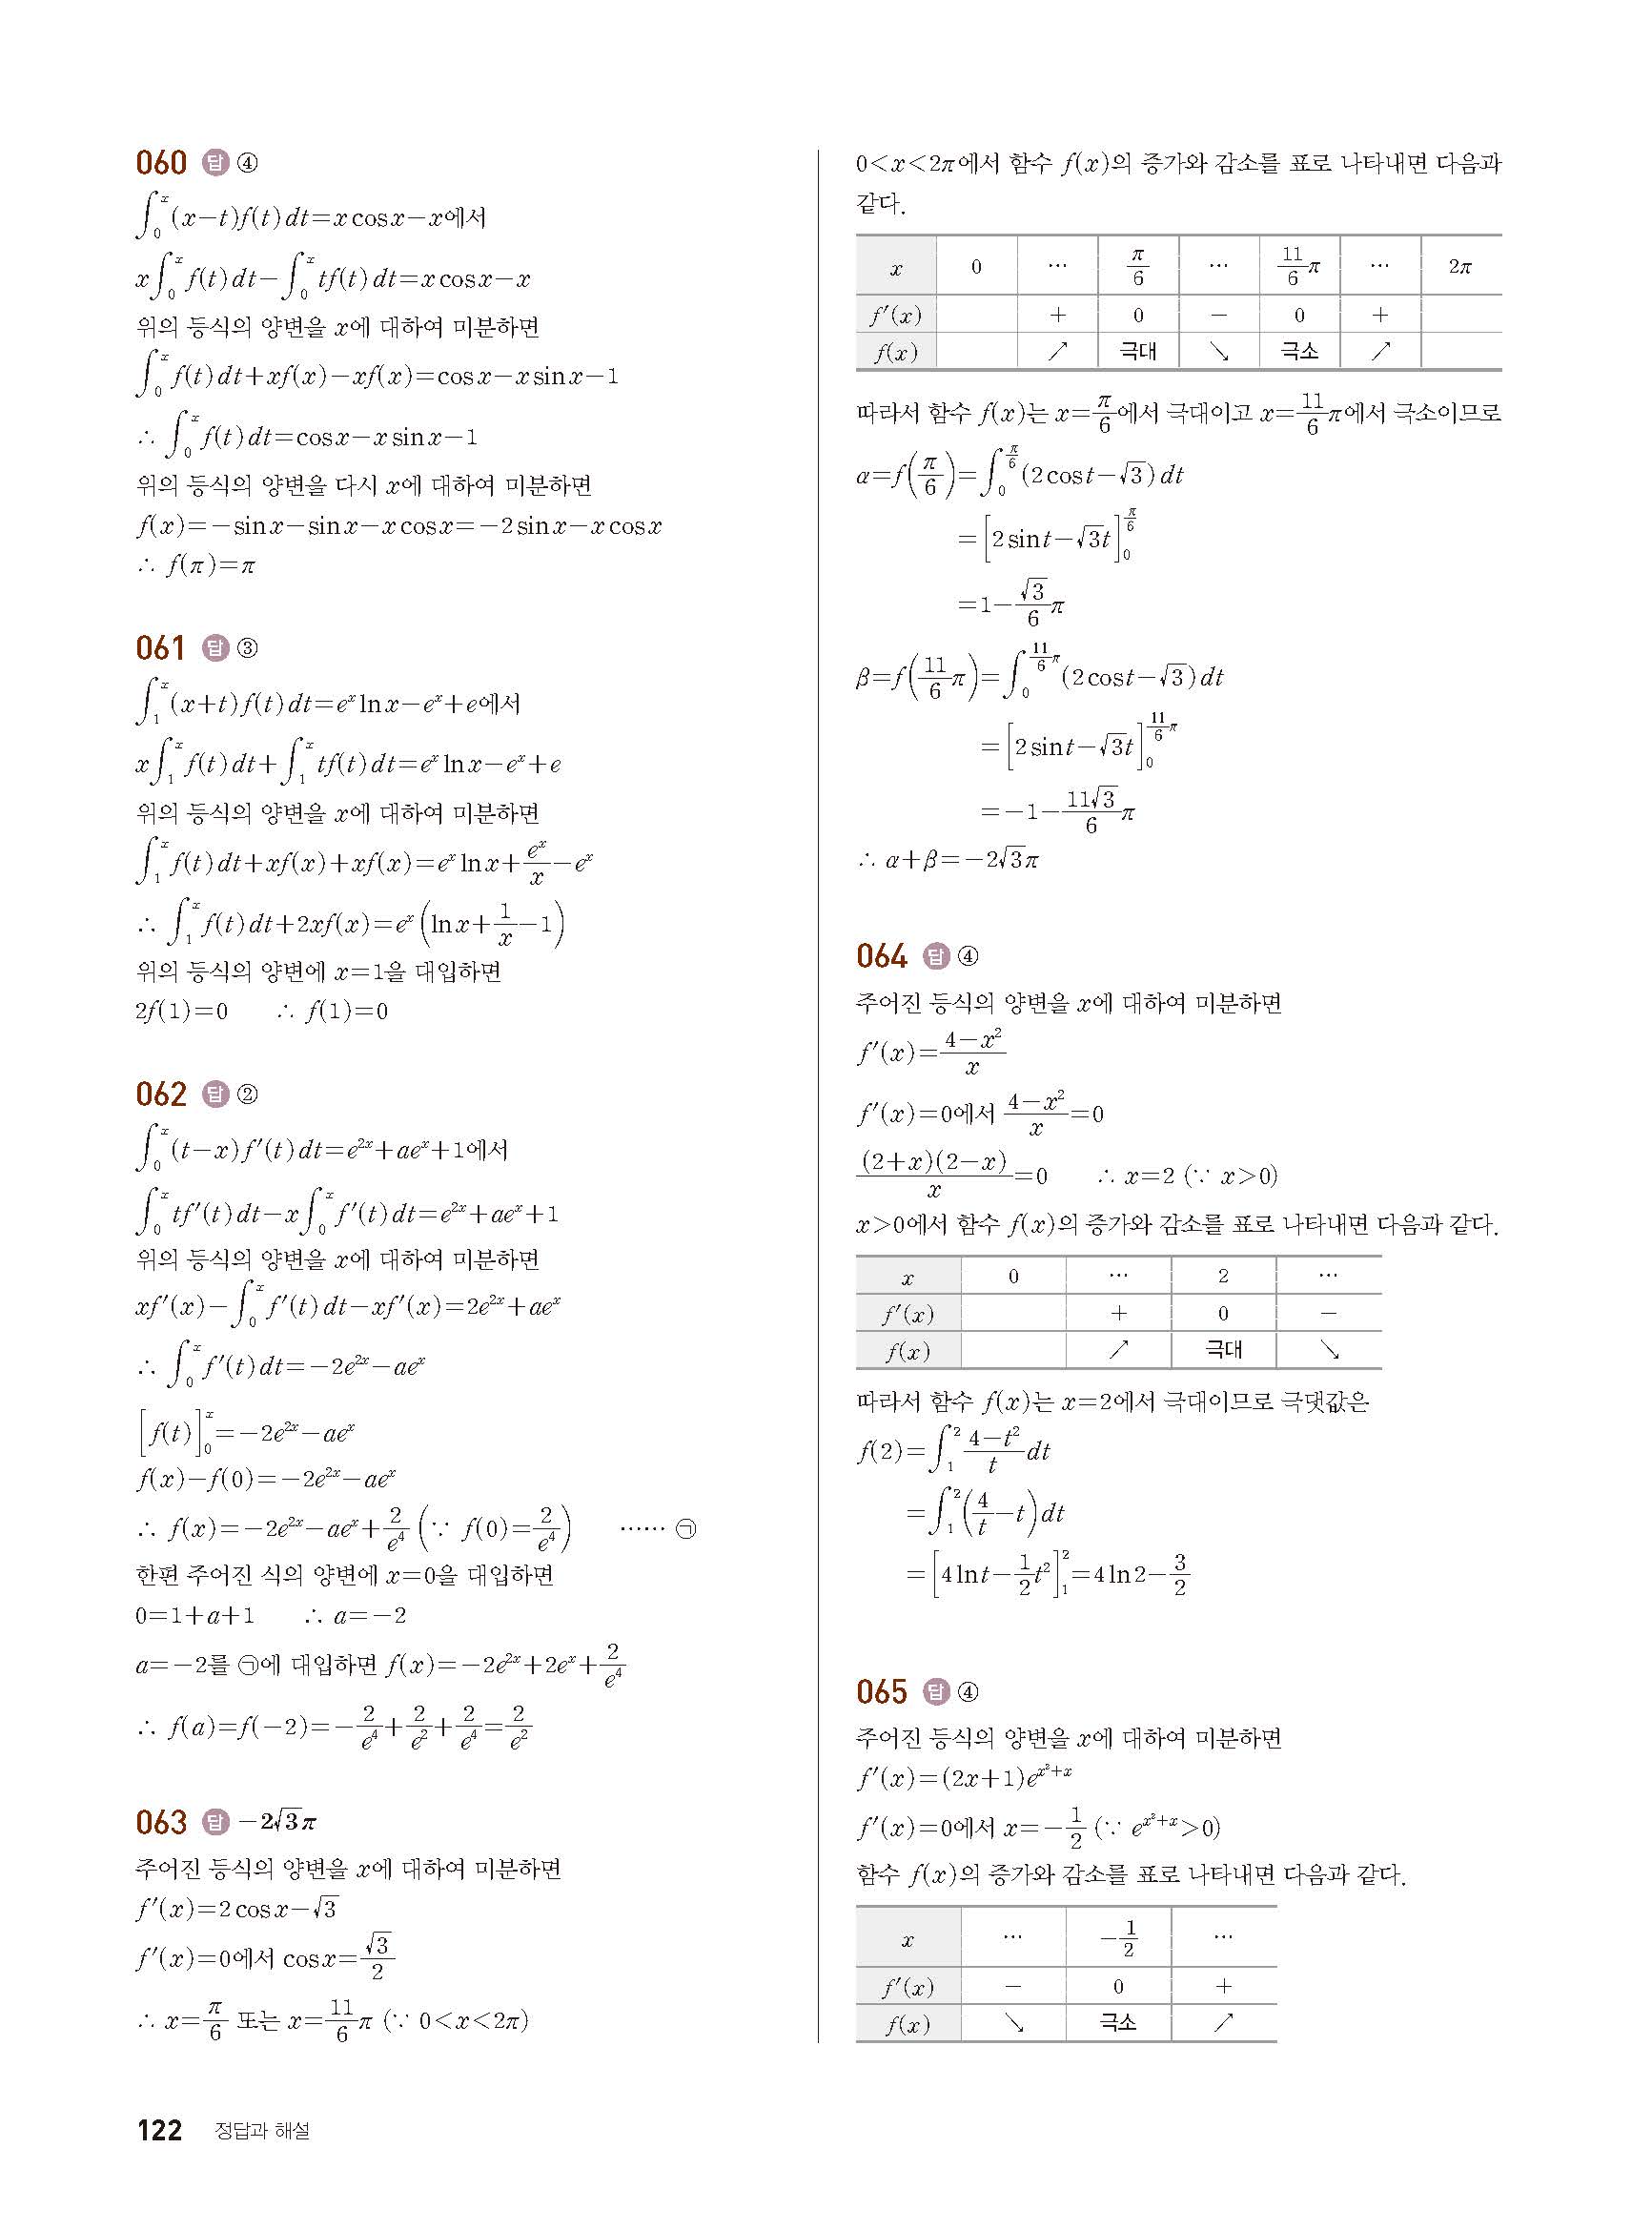 060 답 ④
∫₀ˣ(x−t)f(t)dt=xcosx−x에서
x∫₀ˣf(t)dt−∫₀ˣtf(t)dt=xcosx−x
위의 등식의 양변을 x에 대하여 미분하면
∫₀ˣf(t)dt+xf(x)−xf(x)=cosx−xsinx−1
∴ ∫₀ˣf(t)dt=cosx−xsinx−1
위의 등식의 양변을 다시 x에 대하여 미분하면
f(x)=−sinx−sinx−xcosx=−2sinx−xcosx
∴ f(π)=π
061 답 ③
∫₁ˣ(x+t)f(t)dt=eˣlnx−eˣ+e에서
x∫₁ˣf(t)dt+∫₁ˣtf(t)dt=eˣlnx−eˣ+e
위의 등식의 양변을 x에 대하여 미분하면
∫₁ˣf(t)dt+xf(x)+xf(x)=eˣlnx+eˣ/x−eˣ
∴ ∫₁ˣf(t)dt+2xf(x)=eˣ(lnx+1/x−1)
위의 등식의 양변에 x=1을 대입하면
2f(1)=0 ∴ f(1)=0
062 답 ②
∫₀ˣ(t−x)f′(t)dt=e²ˣ+aeˣ+1에서
∫₀ˣtf′(t)dt−x∫₀ˣf′(t)dt=e²ˣ+aeˣ+1
위의 등식의 양변을 x에 대하여 미분하면
xf′(x)−∫₀ˣf′(t)dt−xf′(x)=2e²ˣ+aeˣ
∴ ∫₀ˣf′(t)dt=−2e²ˣ−aeˣ
[f(t)]₀ˣ=−2e²ˣ−aeˣ
f(x)−f(0)=−2e²ˣ−aeˣ
∴ f(x)=−2e²ˣ−aeˣ+2/e⁴ (∵ f(0)=2/e⁴) …… ㉠
한편 주어진 식의 양변에 x=0을 대입하면
0=1+a+1 ∴ a=−2
a=−2를 ㉠에 대입하면 f(x)=−2e²ˣ+2eˣ+2/e⁴
∴ f(a)=f(−2)=−2/e⁴+2/e²+2/e⁴=2/e²
063 답 −2√3π
주어진 등식의 양변을 x에 대하여 미분하면
f′(x)=2cosx−√3
f′(x)=0에서 cosx=√3/2
∴ x=π/6 또는 x=11/6π (∵ 0<x<2π)
0<x<2π에서 함수 f(x)의 증가와 감소를 표로 나타내면 다음과
같다.
x 0 … π/6 … 11/6π … 2π
f′(x) + 0 − 0 +
f(x) ↗ 극대 ↘ 극소 ↗
따라서 함수 f(x)는 x=π/6에서 극대이고 x=11/6π에서 극소이므로
α=f(π/6)=∫₀^(π/6)(2cost−√3)dt
=[2sint−√3t]₀^(π/6)
=1−√3/6π
β=f(11/6π)=∫₀^(11/6π)(2cost−√3)dt
=[2sint−√3t]₀^(11/6π)
=−1−11√3/6π
∴ α+β=−2√3π
064 답 ④
주어진 등식의 양변을 x에 대하여 미분하면
f′(x)=(4−x²)/x
f′(x)=0에서 (4−x²)/x=0
(2+x)(2−x)/x=0 ∴ x=2 (∵ x>0)
x>0에서 함수 f(x)의 증가와 감소를 표로 나타내면 다음과 같다.
x 0 … 2 …
f′(x) + 0 −
f(x) ↗ 극대 ↘
따라서 함수 f(x)는 x=2에서 극대이므로 극댓값은
f(2)=∫₁²(4−t²)/t dt
=∫₁²(4/t−t)dt
=[4lnt−1/2t²]₁²=4ln2−3/2
065 답 ④
주어진 등식의 양변을 x에 대하여 미분하면
f′(x)=(2x+1)e^(x²+x)
f′(x)=0에서 x=−1/2 (∵ e^(x²+x)>0)
함수 f(x)의 증가와 감소를 표로 나타내면 다음과 같다.
x … −1/2 …
f′(x) − 0 +
f(x) ↘ 극소 ↗
122 정답과 해설